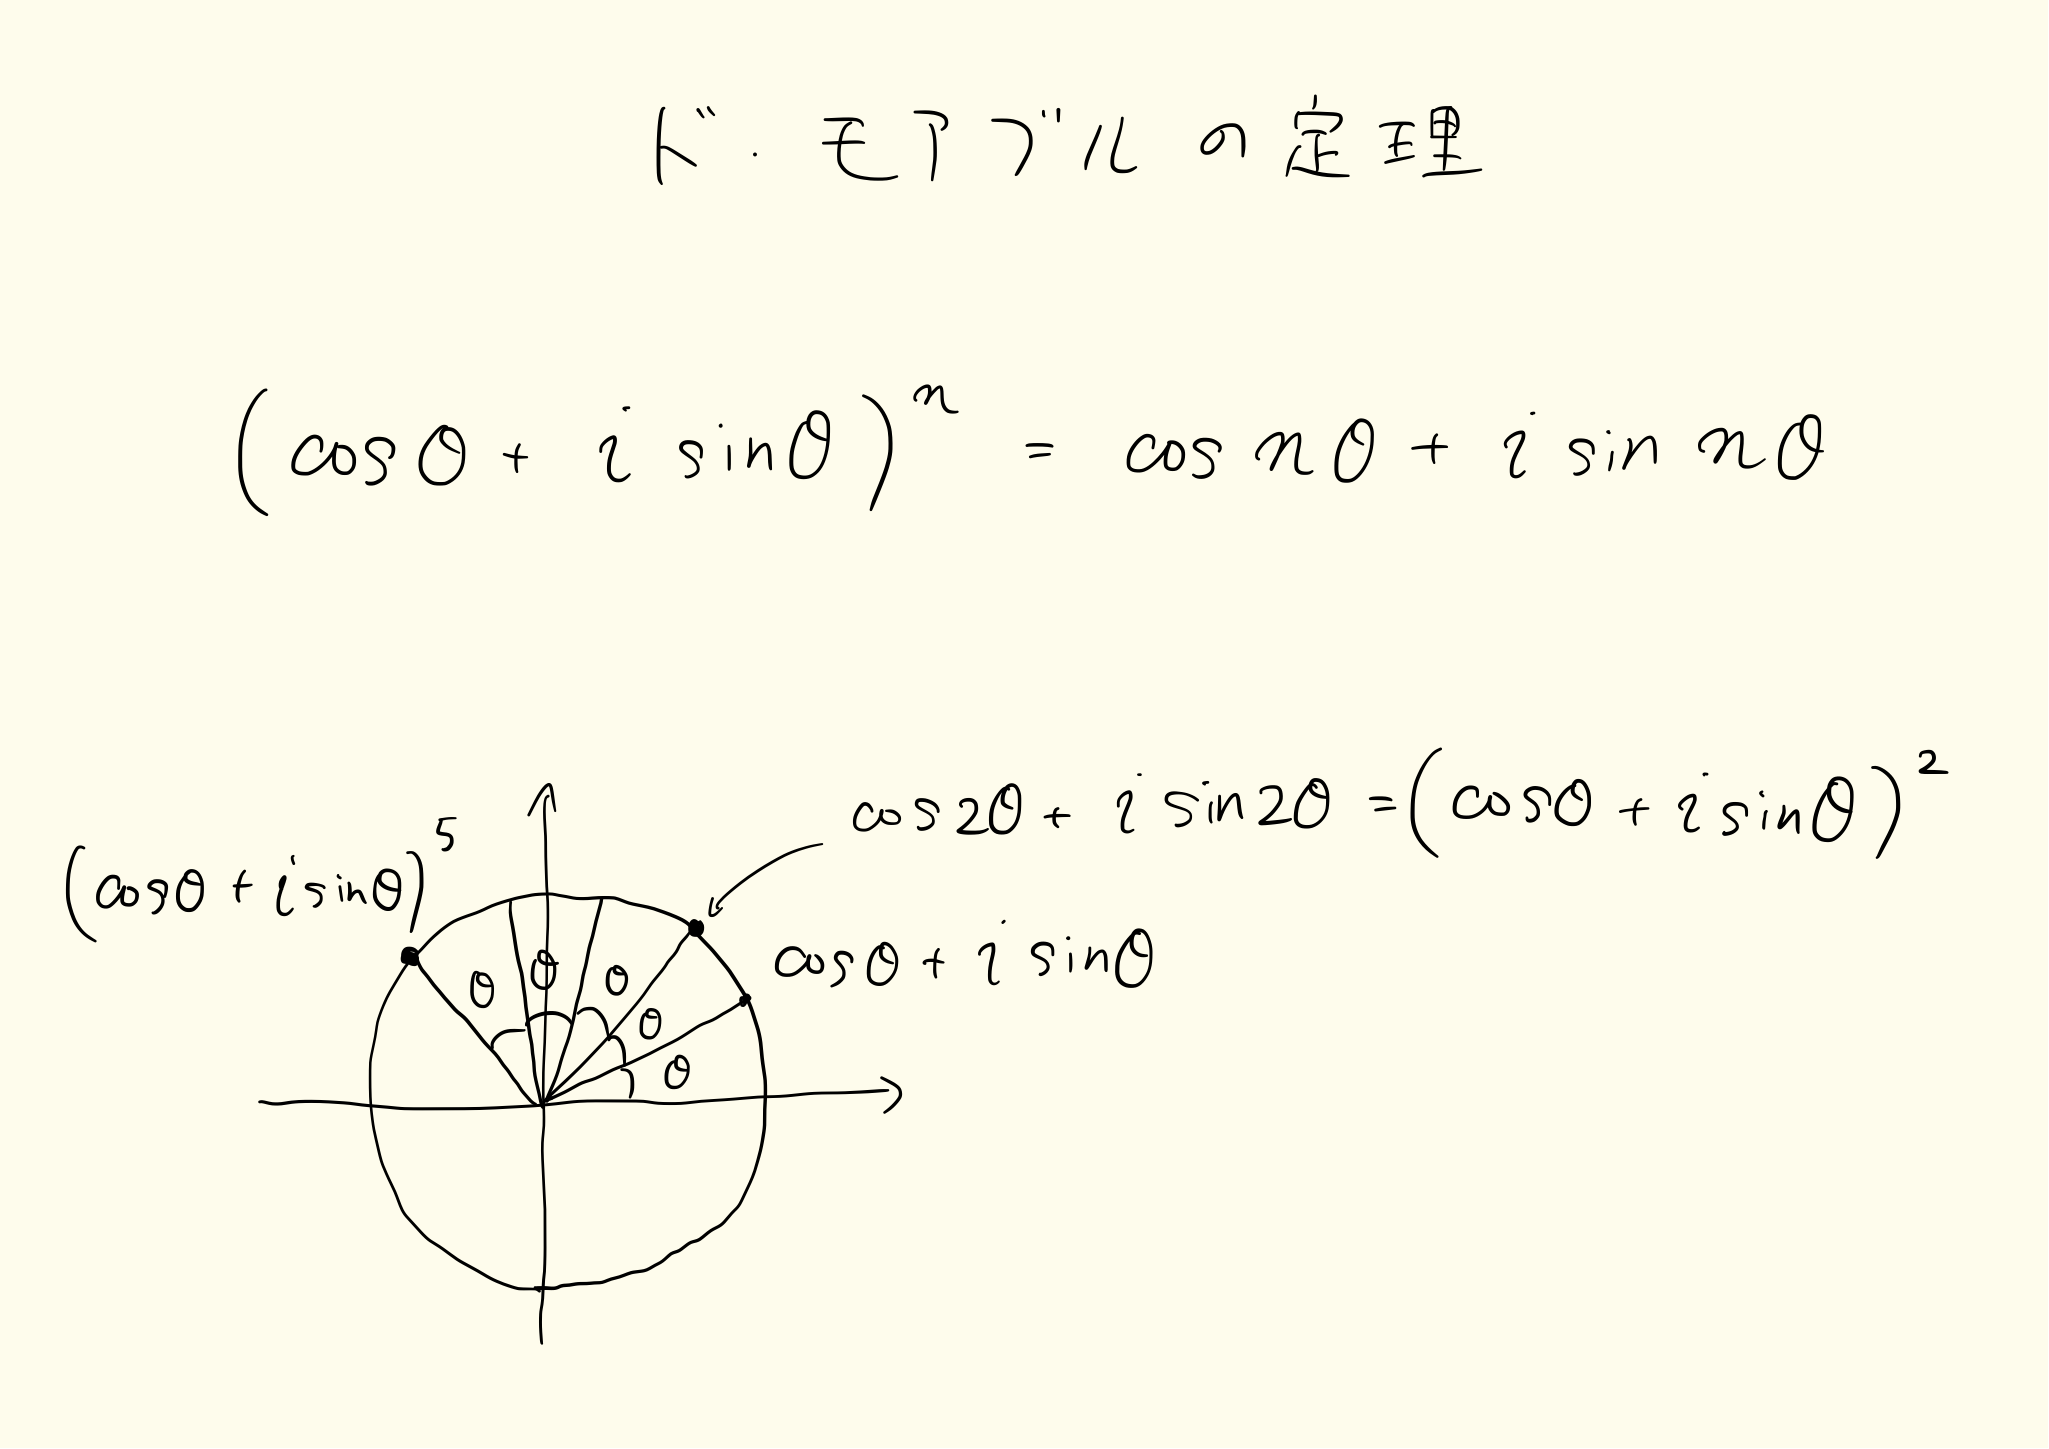 ド・モアブルの定理
(cosθ + i sinθ)ⁿ = cos nθ + i sin nθ
cos2θ + i sin2θ = (cosθ + i sinθ)²
(cosθ + i sinθ)⁵
cosθ + i sinθ
θ θ θ
θ
θ